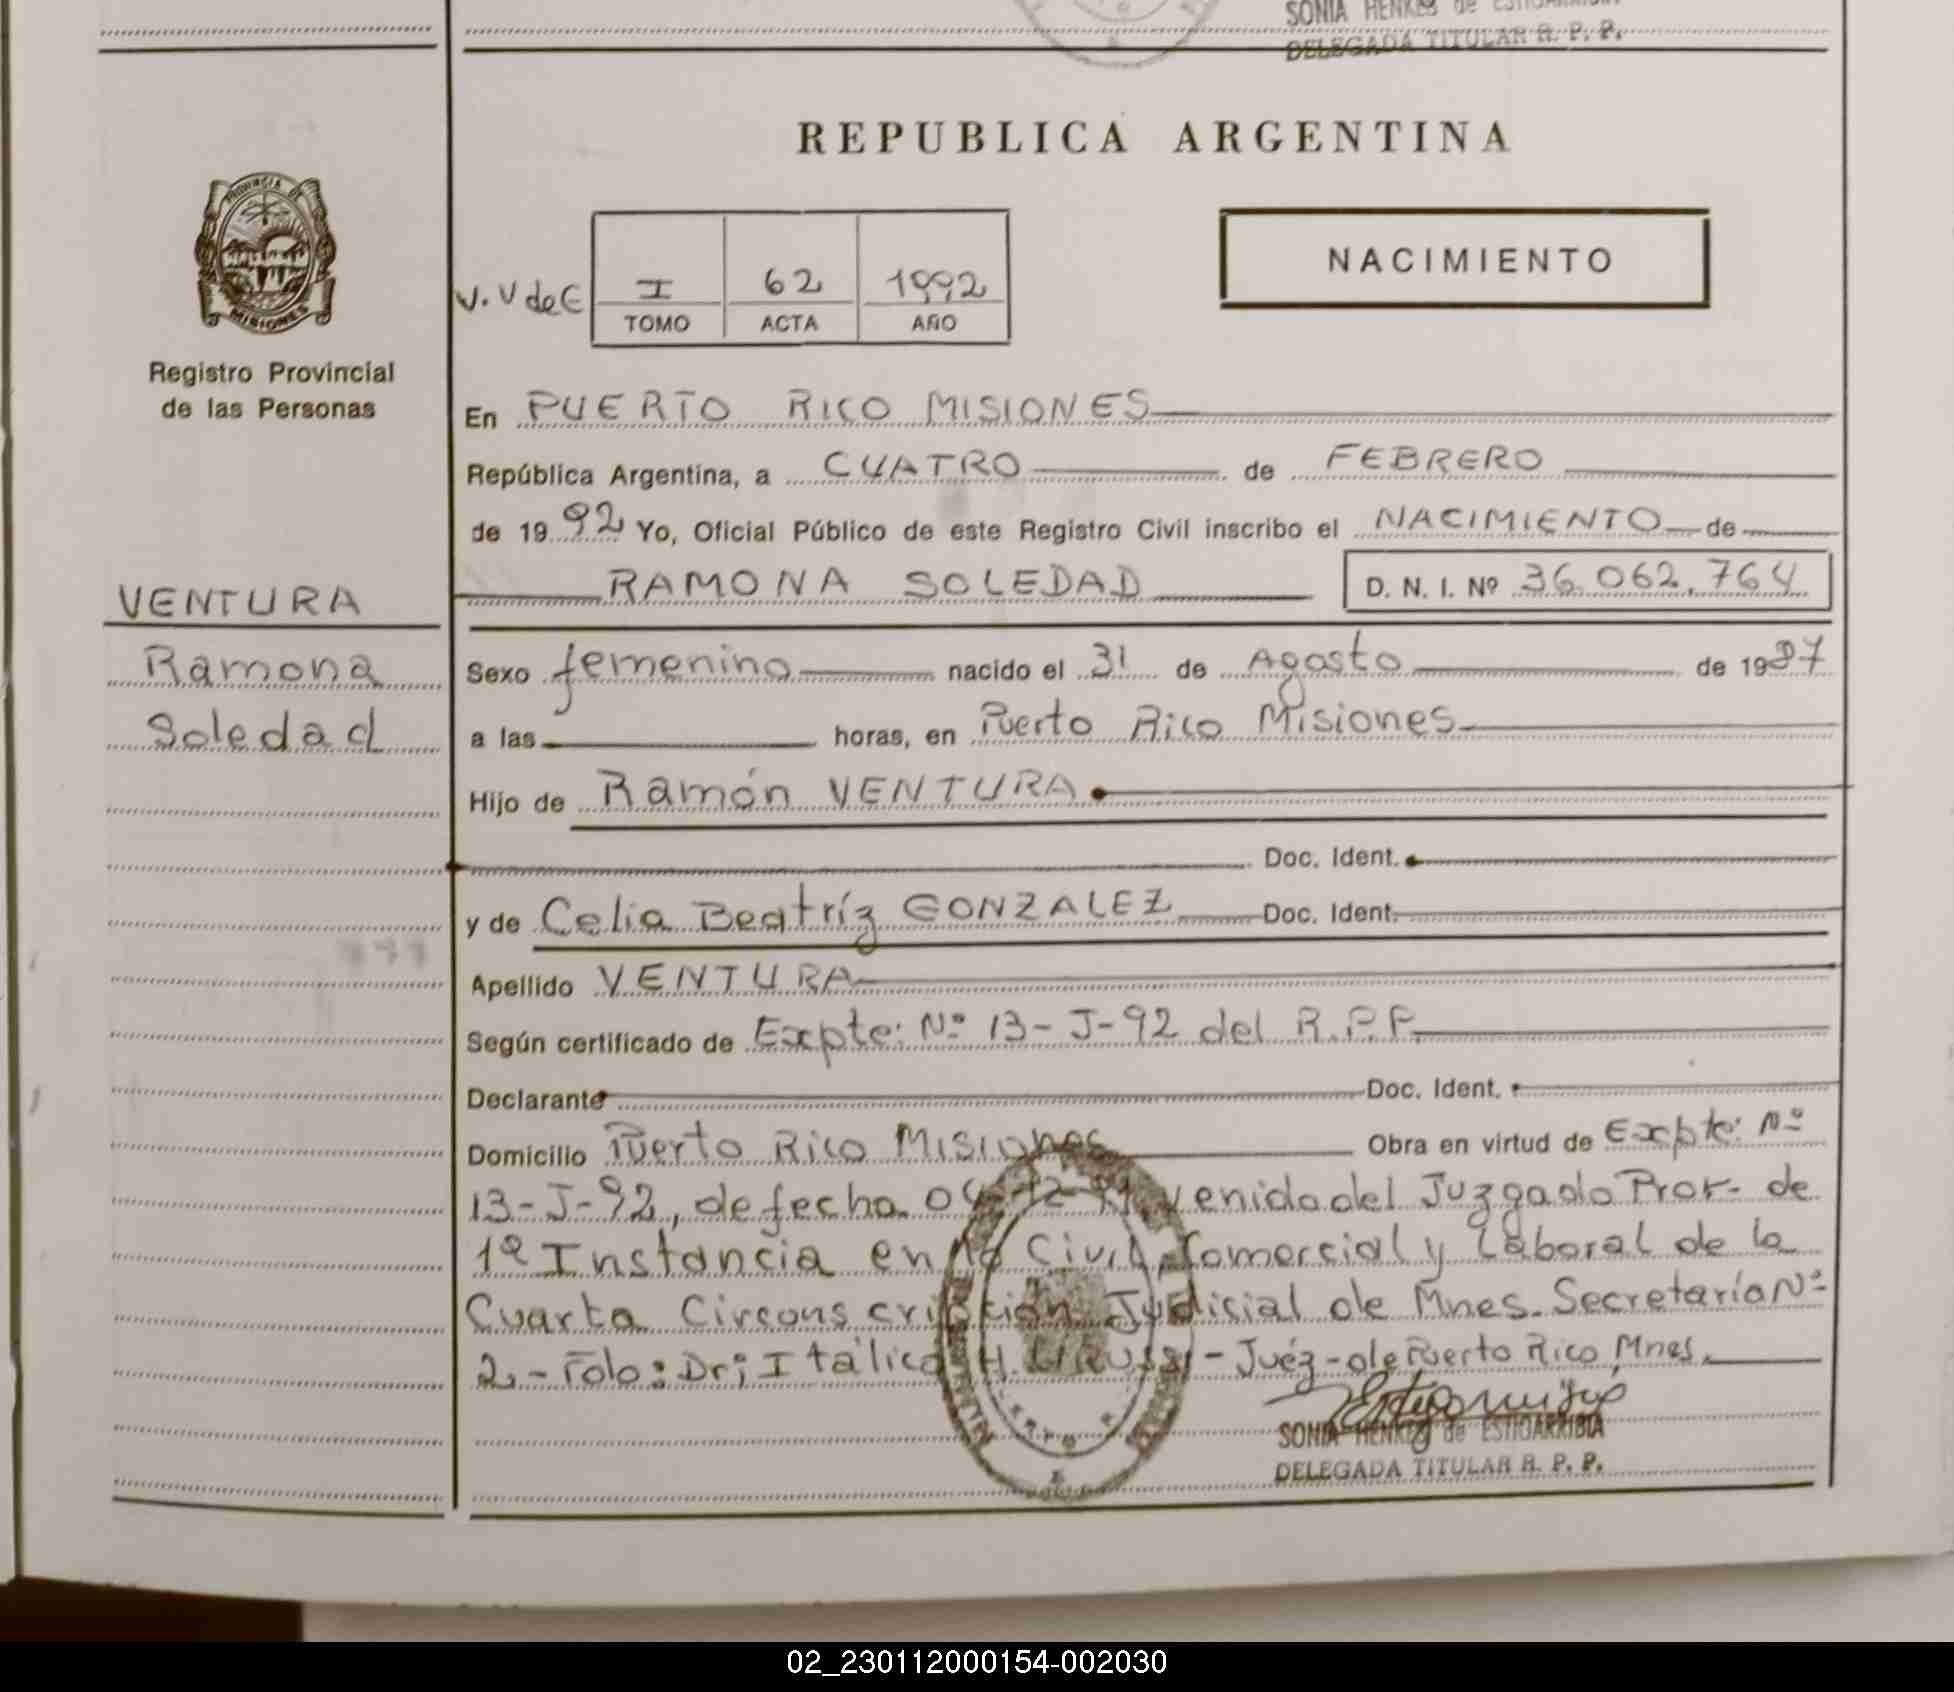 SONIA HENKES de ESTIGARRIBIA
DELEGADA TITULAR R. P. P.
REPUBLICA ARGENTINA
PROVINCIA DE
MISIONES
Registro Provincial
de las Personas
V. V de E
I 62 1992
TOMO ACTA AÑO
NACIMIENTO
En PUERTO RICO MISIONES
República Argentina, a CUATRO de FEBRERO
de 19 92 Yo, Oficial Público de este Registro Civil inscribo el NACIMIENTO de
RAMONA SOLEDAD D. N. I. Nº 36.062.764
VENTURA
Ramona
Soledad
Sexo femenino nacido el 31 de Agosto de 1987
a las horas, en Puerto Rico Misiones
Hijo de Ramón VENTURA
Doc. Ident.
y de Celia Beatríz GONZALEZ Doc. Ident.
Apellido VENTURA
Según certificado de Expte: Nº 13-J-92 del R.P.P.
Declarante Doc. Ident.
Domicilio Puerto Rico Misiones Obra en virtud de Expte: Nº
13-J-92, de fecha venido del Juzgado Pror- de
1º Instancia en lo Civil, Comercial y Laboral de la
Cuarta Circunscripción Judicial de Mnes. Secretaría Nº
2.- Fdo: Dr; Itálico H. - Juéz - de Puerto Rico, Mnes.
SONIA HENKES de ESTIGARRIBIA
DELEGADA TITULAR R. P. P.
02_230112000154-002030